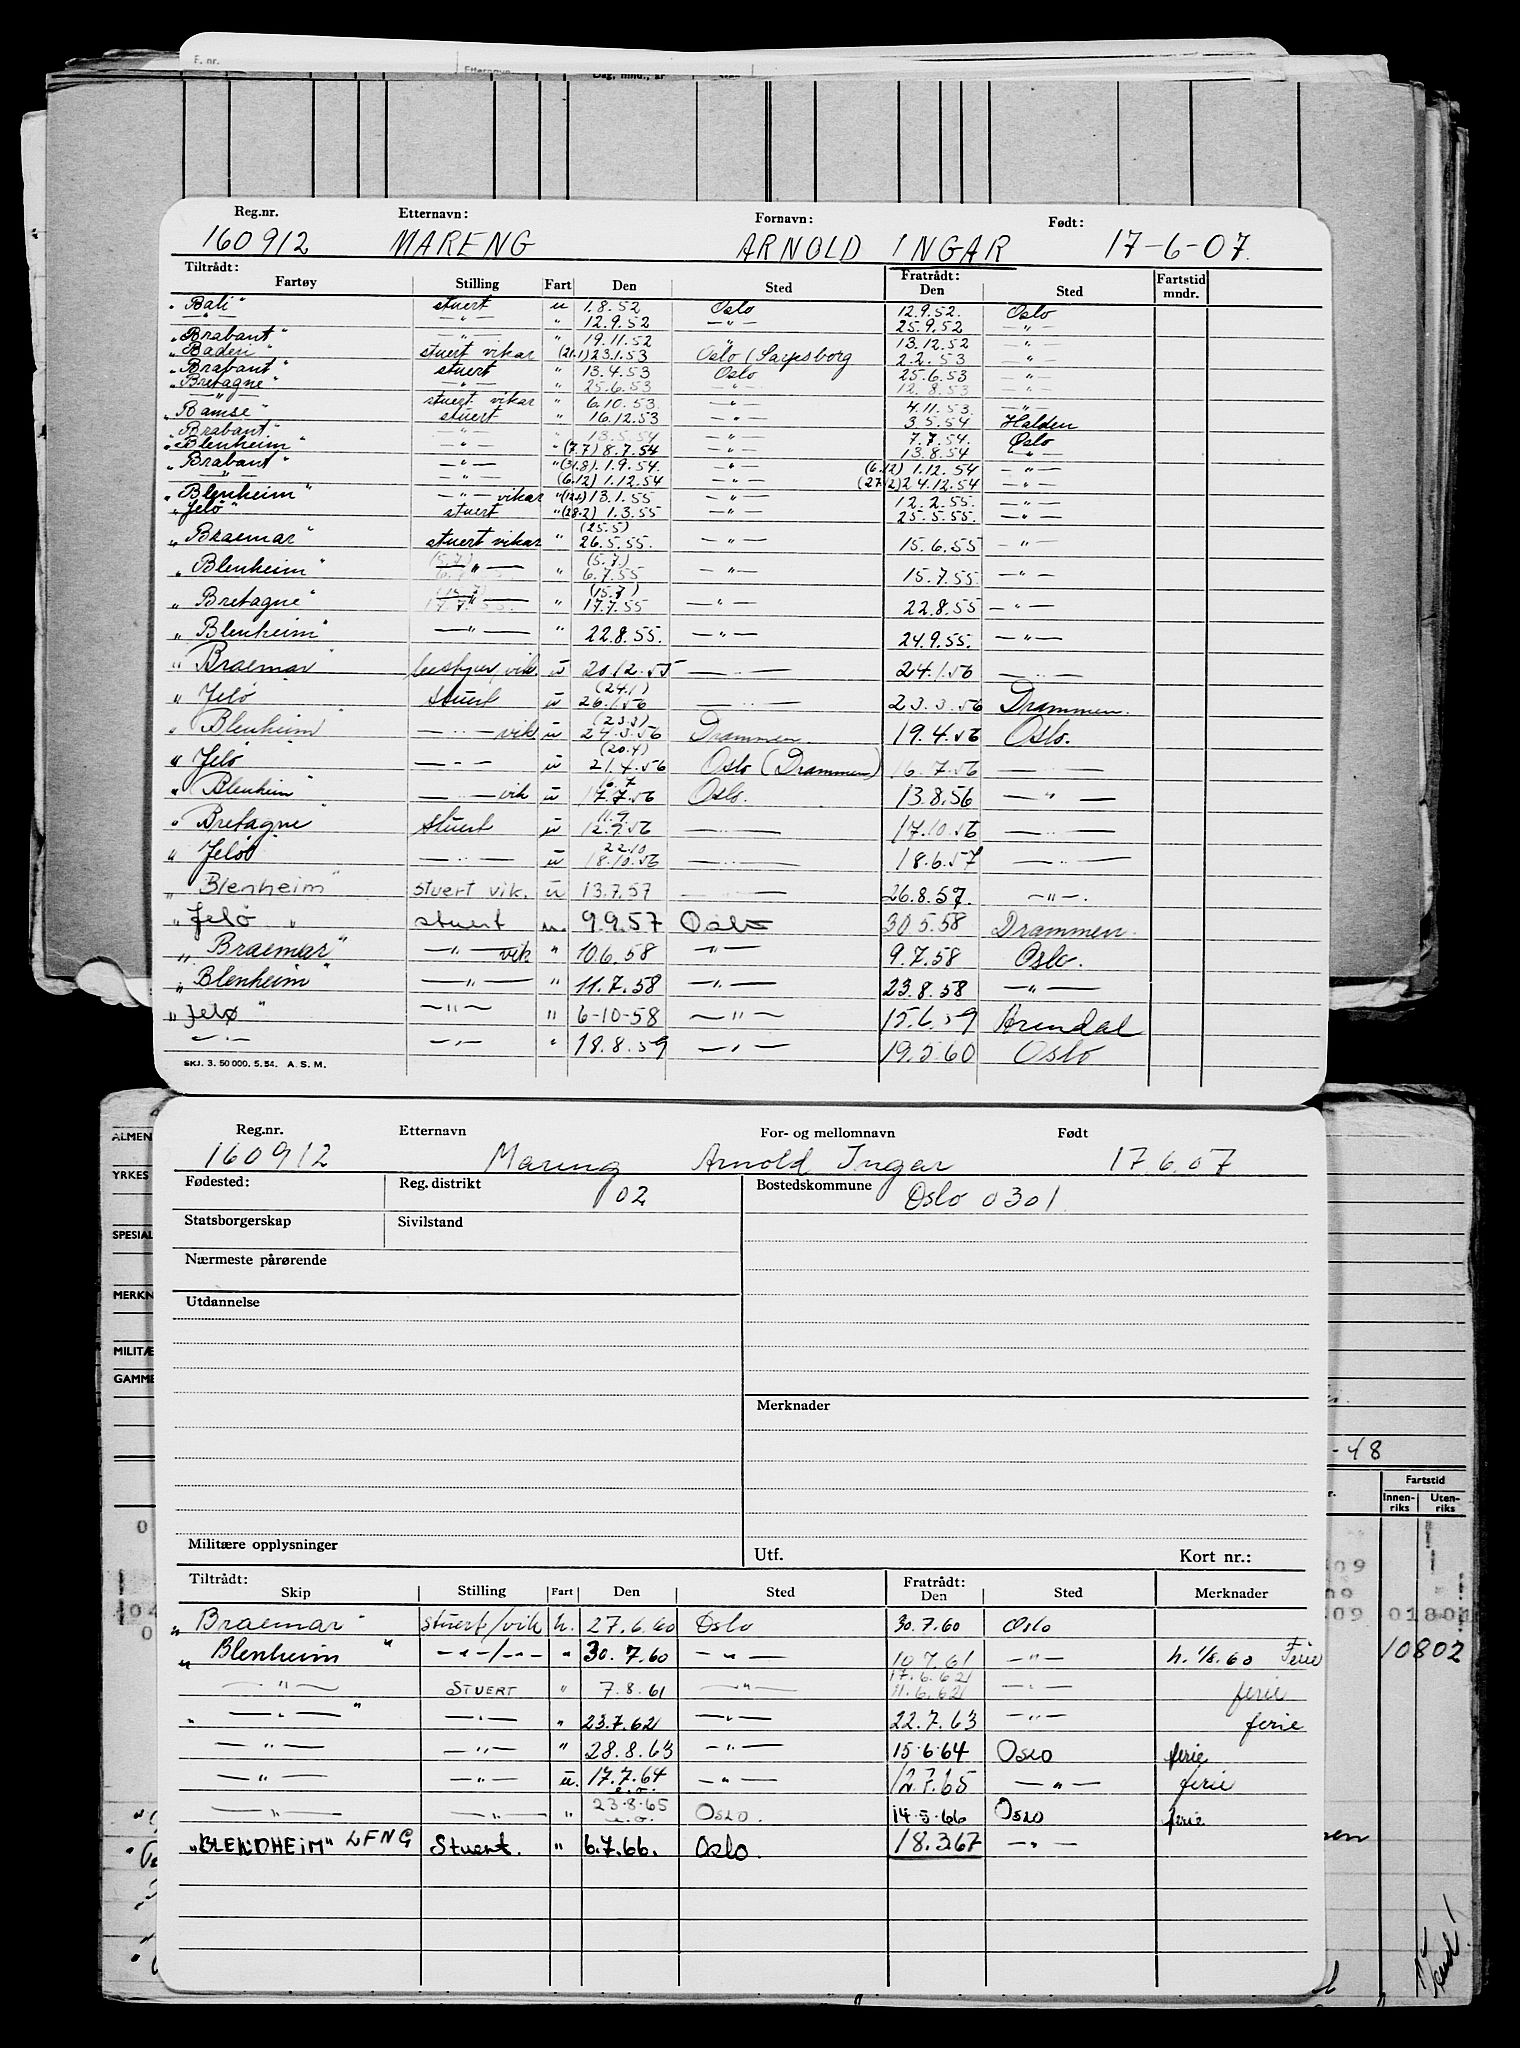 F. nr. Etternavn Dag, mnd., år
Reg.nr. Etternavn: Fornavn: Født:
160912 MARENG ARNOLD INGAR 17-6-07.
Tiltrådt: Fratrådt: Fartstid
Fartøy Stilling Fart Den Sted Den Sted mndr.
"Bali" stuert u 1.8.52 Oslo 12.9.52. Oslo
— " — — " — " 12.9.52 — " — 25.9.52 — " —
"Brabant" — " — " 19.11.52 " 13.12.52 — " —
"Baden" stuert vikar " (21.1) 23.1.53 Oslo (Sarpsborg 2.2.53 — " —
"Brabant" stuert " 13.4.53 Oslo 25.6.53 — " —
"Bretagne" — " — " 25.6.53 — " — 12.8.53 — " —
— " — stuert vikar " 6.10.53. — " — 4.11.53. — " —
"Bamse" stuert " 16.12.53 — " — 3.5.54 Halden
"Brabant" — " — " 13.5.54 — " — 7.7.54. Oslo
"Blenheim" — " — " (7.7) 8.7.54 — " — 13.8.54 — " —
"Brabant" — " — " (31.8). 1.9.54. — " — (6.12) 1.12.54 — " —
— " — — " — (6.12) 1.12.54 — " — (27.12) 24.12.54 — " —
"Blenheim" — " — vikar " 13.1.55 — " — 12.2.55. — " —
"Jelø" stuert " (28.2) 1.3.55 — " — 25.5.55. — " —
"Braemar" stuert vikar " (25.5) 26.5.55. — " — 15.6.55 — " —
"Blenheim" — " — " (5.7.) 6.7.55 — " — 15.7.55 — " —
"Bretagne" — " — " (15.7) 17.7.55 — " — 22.8.55 — " —
"Blenheim" — " — " 22.8.55. — " — 24.9.55. — " —
"Braemar" vik. u 20.12.55 — " — 24.1.56 — " —
"Jelø" stuert u (24.1) 26.1.56 — " — 23.3.56 Drammen.
"Blenheim" — " — vik u (23.3) 24.3.56 Drammen 19.4.56 Oslo.
"Jelø — " — u (20.4) 21.4.56 Oslo (Drammen) 16.7.56 — " —
"Blenheim" — " — vik u 16.7 17.7.56 Oslo. 13.8.56 — " —
"Bretagne" stuert u 11.9. 12.9.56 — " — 17.10.56 — " —
"Jelø" — " — u 22.10 18.10.56 — " — 18.6.57 — " —
"Blenheim" stuert vik. u 13.7.57 — " — 26.8.57. — " —
"Jelø" stuert u. 9.9.57 Oslo 30.5.58 Drammen.
"Braemar" — " — vik " 10.6.58 — " — 9.7.58 Oslo.
"Blenheim" — " — " 11.7.58 — " — 23.8.58 — " —
"Jelø" — " — " 6-10-58 — " — 15.6.59 Arendal
— " — — " — " 18.8.59 — " — 19.5.60 Oslo
SKJ. 3. 50 000. 5. 54. A. S. M.
Reg.nr. Etternavn For- og mellomnavn Født
160912 Mareng Arnold Ingar 17.6.07
Fødested: Reg. distrikt 02 Bostedskommune Oslo 0301
Statsborgerskap Sivilstand
Nærmeste pårørende
Utdannelse
Merknader
Militære opplysninger Utf. Kort nr.:
Tiltrådt: Fratrådt:
Skip Stilling Fart Den Sted Den Sted Merknader
"Braemar" stuert/vik h. 27.6.60 Oslo 30.7.60 Oslo
"Blenheim" — " — / — " — " 30.7.60 — " — 10.7.61 — " — h. 1/8.60 Ferie
— " — STUERT " 7.8.61 — " — 17.6.62 11.6.62 — " — ferie
" — " — " — " — " 23.7.62 — " — 22.7.63 — " — ferie
— " — — " — " 28.8.63 — " — 15.6.64 OSLO ferie
— " — — " — u. 17.7.64 e.o. — " — 12.7.65 — " — ferie
— " — — " — " 23.8.65 e.o. OSLO. 14.5.66 OSLO ferie
"BLENDHEIM" LFNG Stuert. " 6.7.66. Oslo. 18.3.67 — " —
ALMEN
YRKES
SPESIAL
MERKN
MILITÆ
GAMME
-48
Fartstid
Innen-riks Uten-riks
10802